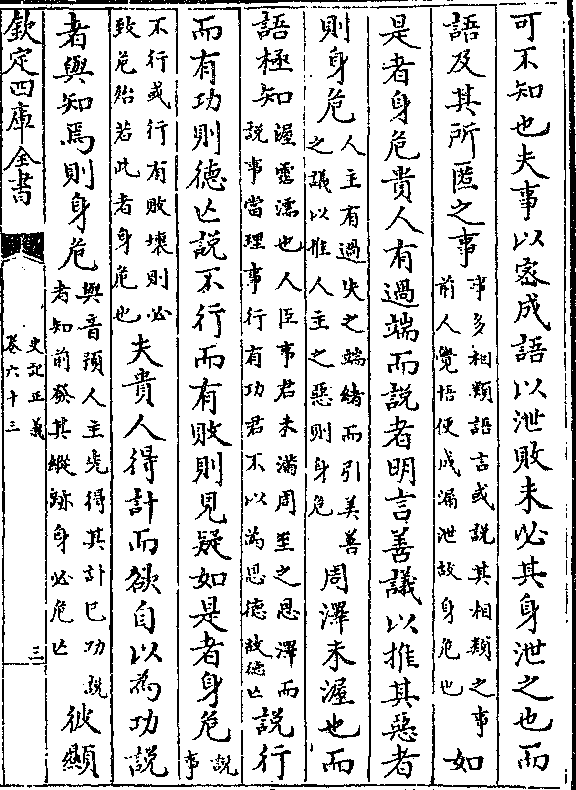 可不知也夫事以宻成語以泄敗未必其身泄之也而
語及其所匿之事事多相類語言或説其相類之事前人覺悟便成漏泄故身危也如
是者身危貴人有過端而說者明言善議以推其惡者
則身危人主有過失之端緒而引美善之議以推人主之惡則身危周澤未渥也而
語極知渥霑濡也人臣事君未滿周至之恩澤而說事當理事行有功君不以為恩德故德亡說行
而有功則德亡說不行而有敗則見疑如是者身危說事
不行或行有敗壞則必致危殆若此者身危也夫貴人得計而欲自以為功說
者與知焉則身危與音預人主先得其計已功説者知前發其縱跡身必危亡彼顯
欽定四庫全書
史記正義
卷六十三
三